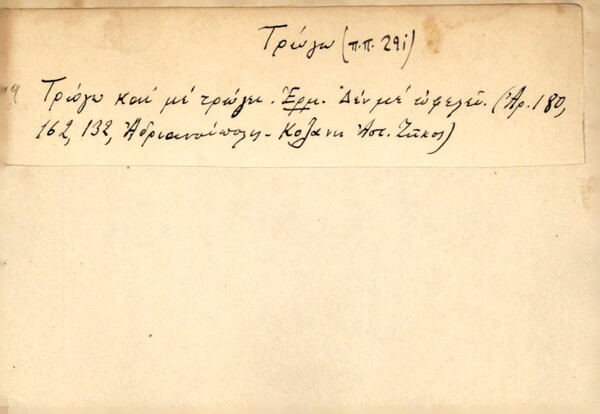 Τρώγω (π.π. 291)
9 Τρώγω καί μέ τρώγει. Ἑρμ. Δέν μέ ὠφελεῖ. (Ἀρ. 180,
162, 132, Ἀδριανούπολις - Κοζάνη Ἀστ. Ζῆκος)